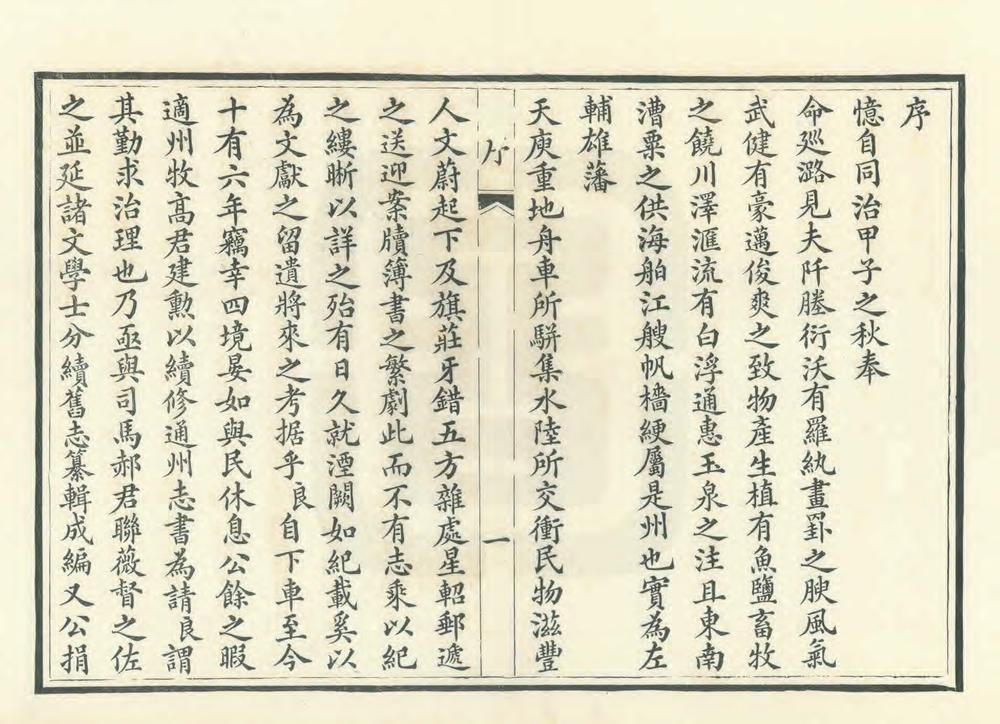 序
憶自同治甲子之秋奉
命廵潞見夫阡塍衍沃有羅紈畫罫之腴風氣
武健有豪邁俊爽之致物產生植有魚鹽畜牧
之饒川澤滙流有白浮通惠玉泉之注且東南
漕粟之供海舶江艘帆檣綆屬是州也實為左
輔雄藩
天庾重地舟車所駢集水陸所交衝民物滋豐
序
一
人文蔚起下及旗莊牙錯五方雜處星軺郵遞
之送迎案牘簿書之繁劇此而不有志乘以紀
之縷晰以詳之殆有日久就湮闕如紀載奚以
為文獻之留遺將來之考据乎良自下車至今
十有六年竊幸四境晏如與民休息公餘之暇
適州牧高君建勳以續修通州志書為請良謂
其勤求治理也乃亟與司馬郝君聯薇督之佐
之並延諸文學士分續舊志纂輯成編又公捐